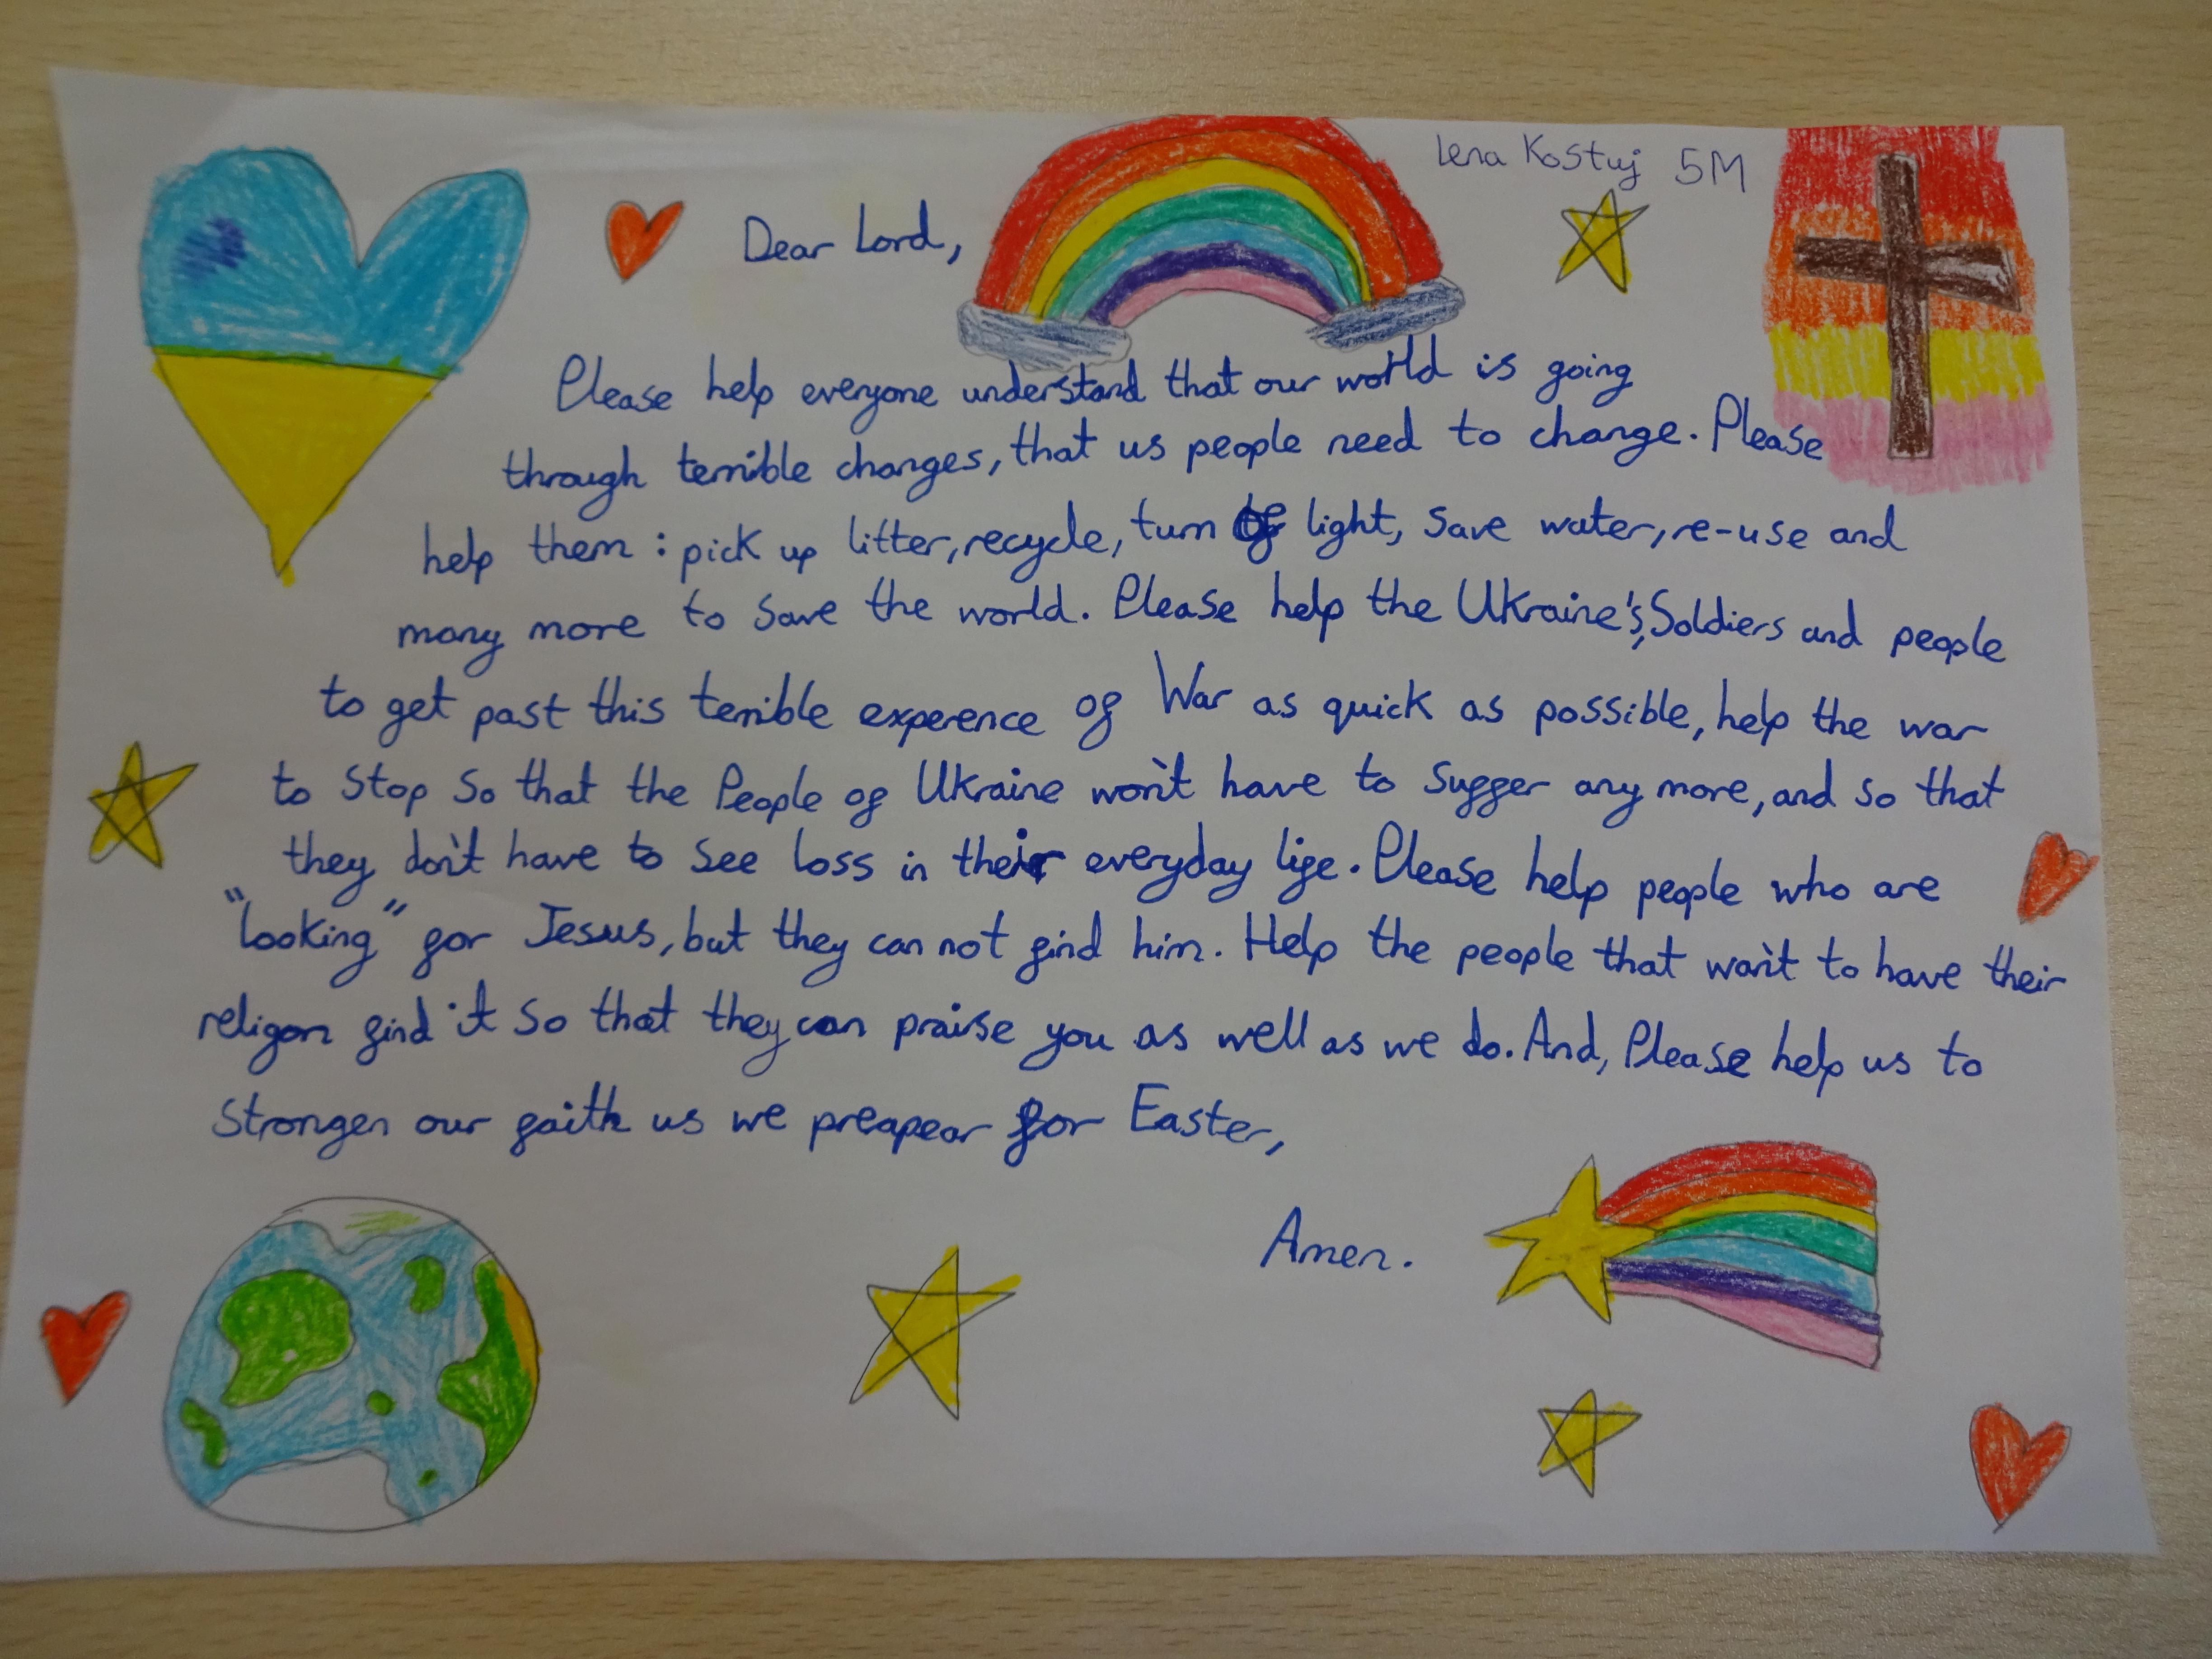 Lena Kostuj 5M
Dear Lord,
Please help everyone understand that our world is going
through terrible changes, that us people need to change. Please
help them : pick up litter, recycle, turn of light, save water, re-use and
many more to save the world. Please help the Ukraine's, Soldiers and people
to get past this terrible experence of War as quick as possible, help the war
to stop so that the People of Ukraine won't have to suffer any more, and so that
they don't have to see loss in their everyday life. Please help people who are
"looking" for Jesus, but they can not find him. Help the people that wan't to have their
religon find it so that they can praise you as well as we do. And, Please help us to
strongen our faith us we preapear for Easter,
Amen.